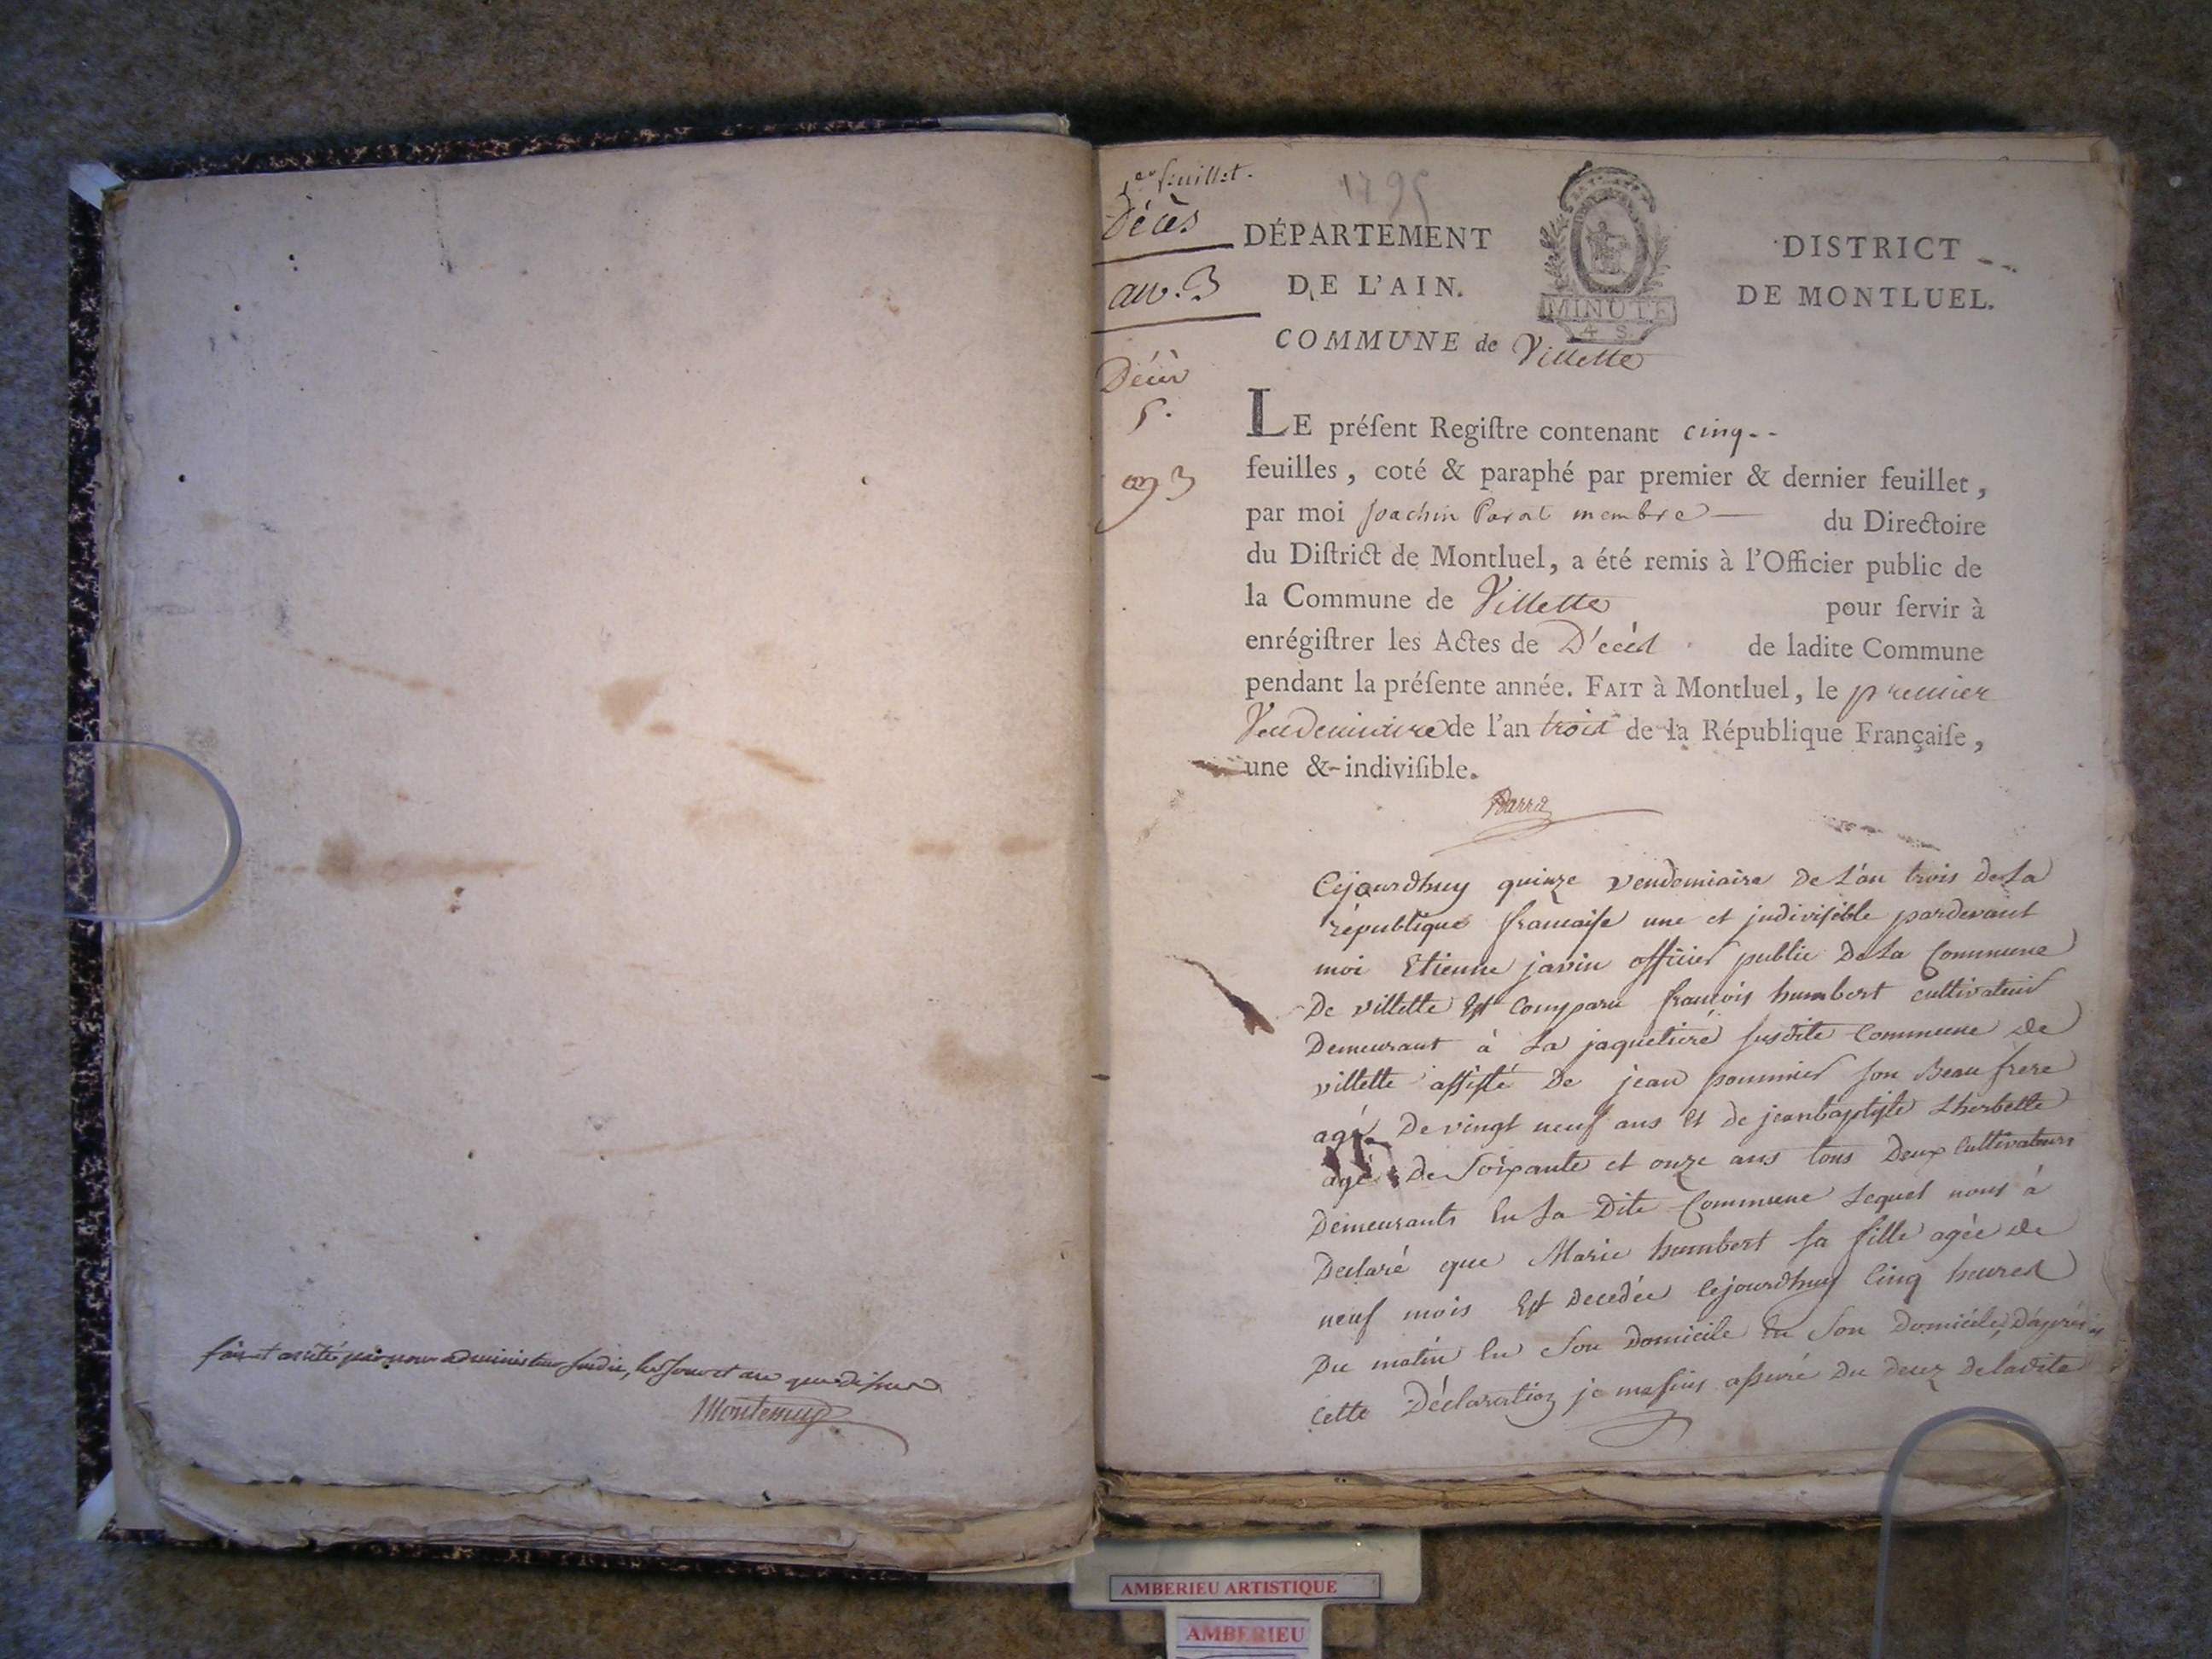 fait et arrêté par nous administrateur susdit, les jour et an que dessus
Montemuy
1er feuillet.
Décès
an. 3
Décès
5.
an 3
1795
DÉPARTEMENT
DE L'AIN.
MINUTE
4 S
DISTRICT
DE MONTLUEL.
COMMUNE de Villette
LE préſent Regiſtre contenant cinq --
feuilles, coté & paraphé par premier & dernier feuillet,
par moi Joachin Parat membre — du Directoire
du Diſtrict de Montluel, a été remis à l'Officier public de
la Commune de Villette pour ſervir à
enrégiſtrer les Actes de Décès de ladite Commune
pendant la préſente année. FAIT à Montluel, le premier
Vendemiaire de l'an trois de la République Françaiſe,
une & indiviſible.
Cejourdhuy quinze vendemiaire de L'an trois de La
république francaise une et indivisible pardevant
moi Etienne javin officier public de La Commune
De villette Est Comparu francois humbert cultivateur
Demeurant à La jaquetiere susdite Commune de
villette assisté De jean pommier son Beau frere
agé De vingt neuf ans Et de jeanbaptiste Lherbette
agé De Soixante et onze ans tous Deux Cultivateurs
Demeurants En La Dite Commune Lequel nous à
Declaré que Marie humbert sa fille agée de
neuf mois Est Decedée Cejourdhuy Cinq heures
Du matin En Son Domicile En Son Domicile, D'après
Cette Déclaration je me suis assuré Du Deuz De ladite
AMBERIEU ARTISTIQUE
AMBERIEU